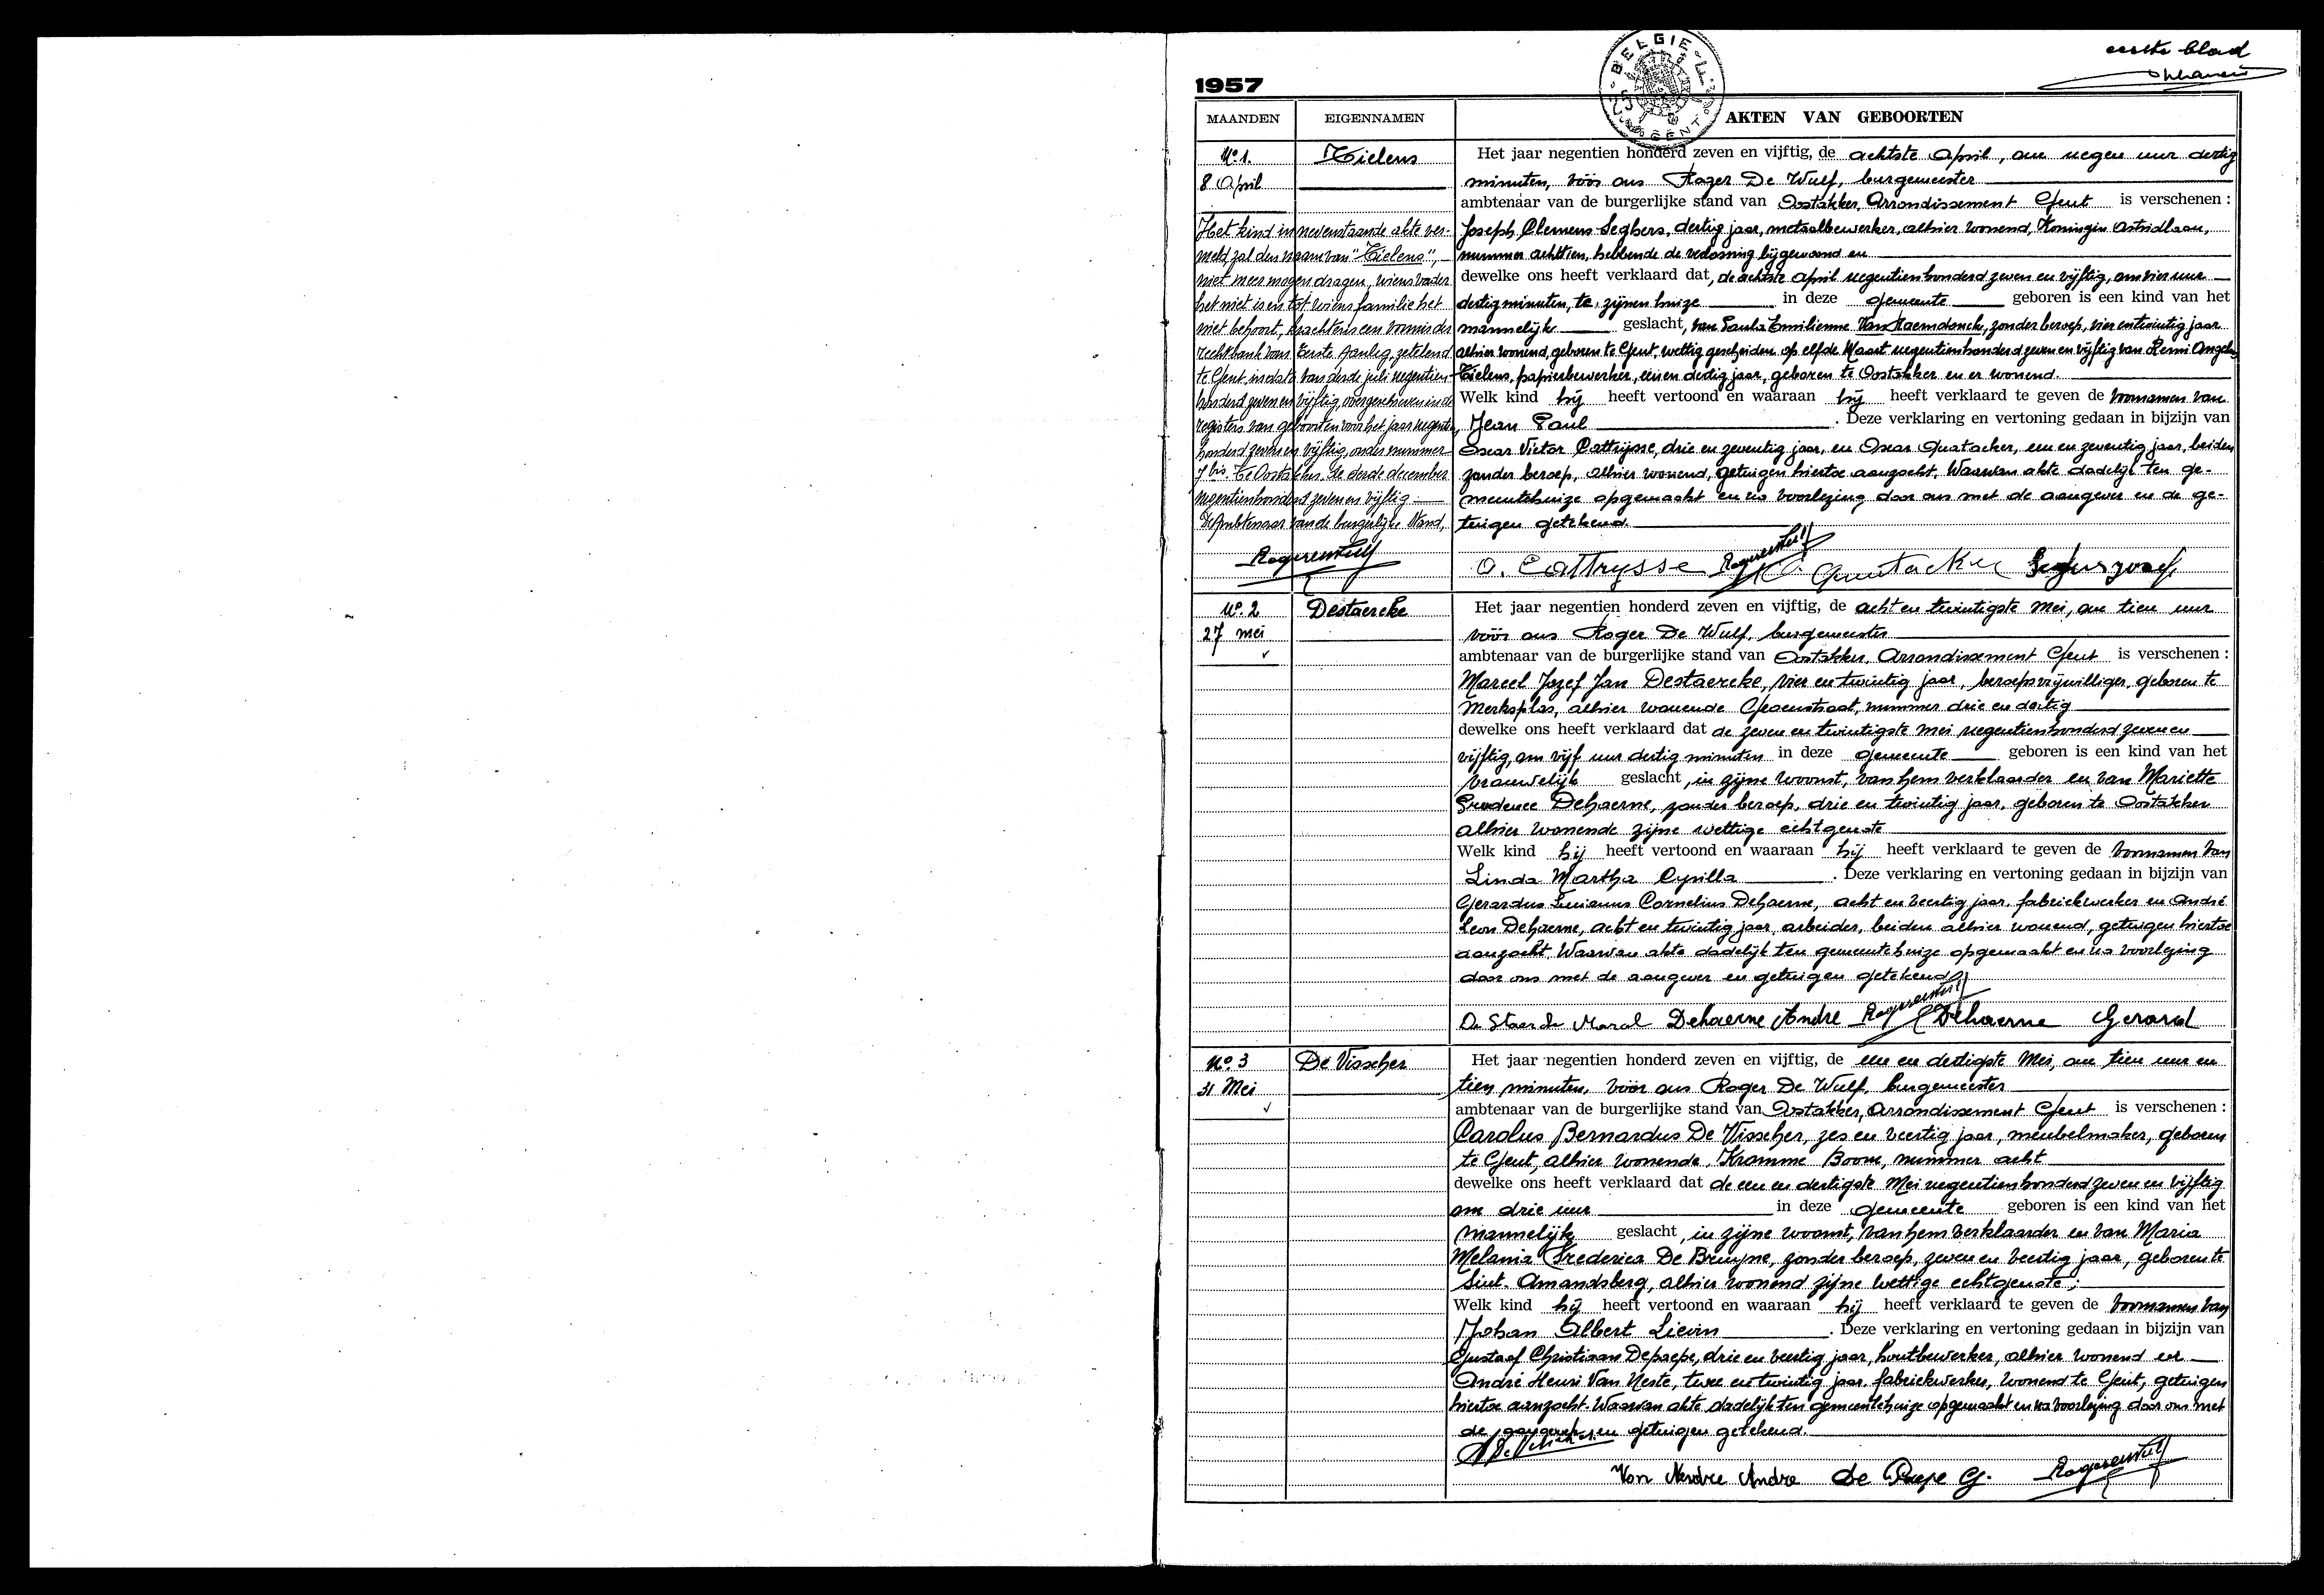 eerste blad
BELGIE
GENT
1957
MAANDEN EIGENNAMEN AKTEN VAN GEBOORTEN
No. 1. Tielens
8 April
Het kind in nevenstaande akte ver-
meld, zal den naam van "Tielens",
niet meer mogen dragen, wiens vader
het niet is en tot wiens familie het
niet behoort, krachtens een vonnis der
rechtbank van Eerste Aanleg, zetelend
te Gent in data van derde juli negentien-
honderd zeven en vijftig, overgeschreven in de
registers van geboorten voor het jaar negentien
honderd zeven en vijftig, onder nummer
7 bis. Te Oostakker, de derde december
negentienhonderd zeven en vijftig
De Ambtenaar van de burgerlijke Stand,
Het jaar negentien honderd zeven en vijftig, de achtste April, om negen uur dertig
minuten, vóór ons Roger De Wulf, burgemeester
ambtenaar van de burgerlijke stand van Oostakker, Arrondissement Gent is verschenen :
Joseph Clemens Seghers, dertig jaar, metaalbewerker, alhier wonend, Koningin Astridlaan,
nummer achttien, hebbende de verlossing bijgewoond en
dewelke ons heeft verklaard dat, de achtste April negentienhonderd zeven en vijftig, om vier uur
dertig minuten, te zijnen huize in deze gemeente geboren is een kind van het
mannelijk geslacht, van Paula Emilienne Van Raemdonck, zonder beroep, vier en twintig jaar
alhier wonend, geboren te Gent, wettig gescheiden op elfde Maart negentienhonderd zeven en vijftig van Remi Angelus
Tielens, papierbewerker, een en dertig jaar, geboren te Oostakker en er wonend.
Welk kind hij heeft vertoond en waaraan hij heeft verklaard te geven de voornamen van
Jean Paul . Deze verklaring en vertoning gedaan in bijzijn van
Oscar Victor Cattrysse, drie en zeventig jaar, en Oscar Quatacker, een en zeventig jaar, beiden
zonder beroep, alhier wonend, getuigen hiertoe aanzocht. Waarvan akte dadelijk ten ge-
meentehuize opgemaakt en na voorlezing door ons met de aangever en de ge-
tuigen getekend.
O. Cattrysse
No. 2 Destaercke
27 mei
Het jaar negentien honderd zeven en vijftig, de acht en twintigste Mei, om tien uur
vóór ons Roger De Wulf, burgemeester
ambtenaar van de burgerlijke stand van Oostakker, Arrondissement Gent is verschenen :
Marcel Jozef Jan Destaercke, vier en twintig jaar, beroepsvrijwilliger, geboren te
Merksplas, alhier wonende Groenstraat, nummer drie en dertig
dewelke ons heeft verklaard dat de zeven en twintigste mei negentienhonderd zeven en
vijftig, om vijf uur dertig minuten in deze gemeente geboren is een kind van het
vrouwelijk geslacht, in zijne woonst, van hem verklaarder en van Mariette
Prudence Dehaerne, zonder beroep, drie en twintig jaar, geboren te Oostakker
alhier wonende zijne wettige echtgenote
Welk kind hij heeft vertoond en waaraan hij heeft verklaard te geven de voornamen van
Linda Martha Cyrilla . Deze verklaring en vertoning gedaan in bijzijn van
Gerardus Lucianus Cornelius Dehaerne, acht en veertig jaar, fabriekwerker en André
Leon Dehaerne, acht en twintig jaar, arbeider, beiden alhier wonend, getuigen hiertoe
aanzocht. Waarvan akte dadelijk ten gemeentehuize opgemaakt en na voorlezing
door ons met de aangever en getuigen getekend
Dehaerne Andre Dehaerne Gerard
No. 3 De Visscher
31 Mei
Het jaar negentien honderd zeven en vijftig, de een en dertigste Mei, om tien uur en
tien minuten, vóór ons Roger De Wulf, burgemeester
ambtenaar van de burgerlijke stand van Oostakker, Arrondissement Gent is verschenen :
Carolus Bernardus De Visscher, zes en veertig jaar, meubelmaker, geboren
te Gent, alhier wonende, Kromme Boom, nummer acht
dewelke ons heeft verklaard dat de een en dertigste Mei negentienhonderd zeven en vijftig
om drie uur in deze gemeente geboren is een kind van het
mannelijk geslacht, in zijne woonst, van hem verklaarder en van Maria
Melania Frederica De Bruyne, zonder beroep, zeven en veertig jaar, geboren te
Sint-Amandsberg, alhier wonend zijne wettige echtgenote ;
Welk kind hij heeft vertoond en waaraan hij heeft verklaard te geven de voornamen van
Johan Albert Lievin . Deze verklaring en vertoning gedaan in bijzijn van
Gustaaf Christiaan Depaepe, drie en veertig jaar, houtbewerker, alhier wonend en
André Henri Van Neste, twee en twintig jaar, fabriekwerker, wonend te Gent, getuigen
hiertoe aanzocht. Waarvan akte dadelijk ten gemeentehuize opgemaakt en na voorlezing door ons met
de aangever en getuigen getekend.
Andre De Paepe G.